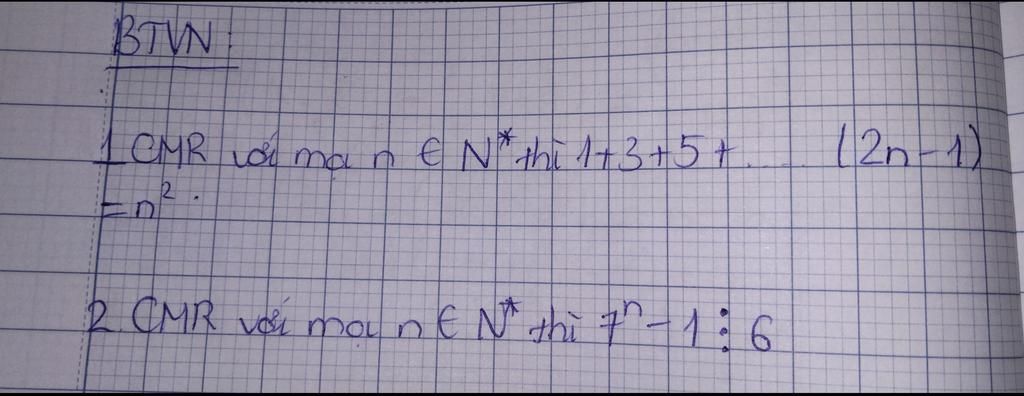 BTVN:
1 CMR với mọi n ∈ N* thì 1+3+5+.... (2n-1)
=n².
2 CMR với mọi n ∈ N* thì 7ⁿ-1 ⋮ 6